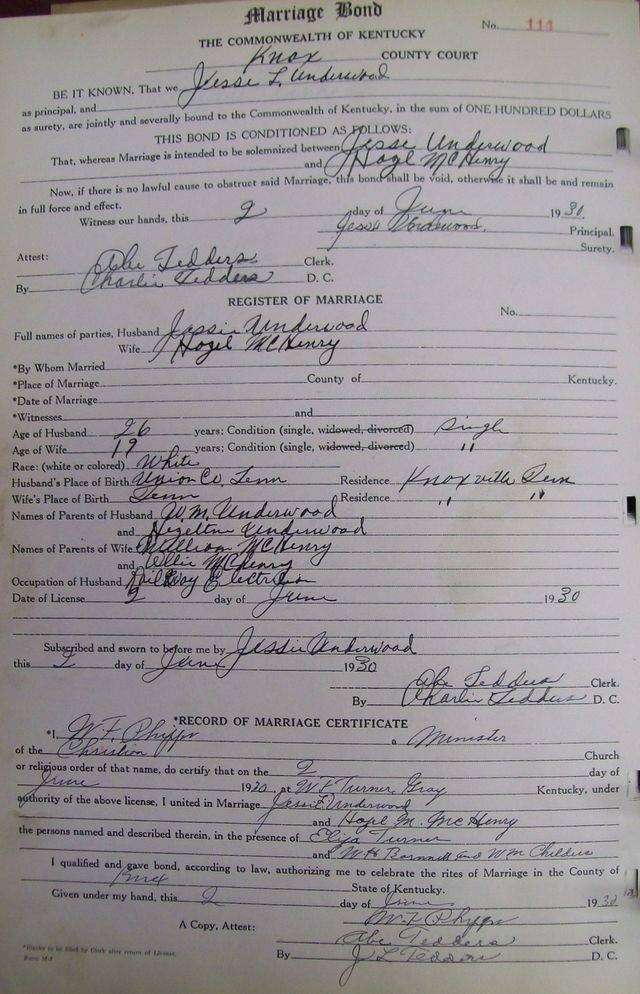 Marriage Bond
No. 114
THE COMMONWEALTH OF KENTUCKY
Knox COUNTY COURT
BE IT KNOWN, That we Jesse L. Underwood
as principal, and
as surety, are jointly and severally bound to the Commonwealth of Kentucky, in the sum of ONE HUNDRED DOLLARS
THIS BOND IS CONDITIONED AS FOLLOWS:
That, whereas Marriage is intended to be solemnized between Jesse Underwood
and Hazel McHenry
Now, if there is no lawful cause to obstruct said Marriage, this bond shall be void, otherwise it shall be and remain
in full force and effect.
Witness our hands, this 2 day of June 1930.
Jess Underwood. Principal.
Surety.
Attest: Abe Tedders Clerk.
By Charlie Tedders D. C.
REGISTER OF MARRIAGE
No.
Full names of parties, Husband Jessie Underwood
Wife Hazel McHenry
*By Whom Married
*Place of Marriage County of Kentucky.
*Date of Marriage
*Witnesses and
Age of Husband 26 years; Condition (single, widowed, divorced) Single
Age of Wife 19 years; Condition (single, widowed, divorced) "
Race: (white or colored) White
Husband's Place of Birth Union Co. Tenn Residence Knoxville Tenn
Wife's Place of Birth Tenn Residence " "
Names of Parents of Husband W.M. Underwood
and Hezeltine Underwood
Names of Parents of Wife William McHenry
and Ollie McHenry
Occupation of Husband Railway Electrician
Date of License 2 day of June 1930
Subscribed and sworn to before me by Jessie Underwood
this 2 day of June 1930
Abe Tedders Clerk.
By Charlie Tedders D. C.
*RECORD OF MARRIAGE CERTIFICATE
*I, W F Phipps a Minister
of the Christian Church
or religious order of that name, do certify that on the 2 day of
June 1930, at W F Turner Gray Kentucky, under
authority of the above license, I united in Marriage Jessie Underwood
and Hazel M. McHenry
the persons named and described therein, in the presence of Elija Turner
and W H and W M Childers
I qualified and gave bond, according to law, authorizing me to celebrate the rites of Marriage in the County of
Knox State of Kentucky.
Given under my hand, this 2 day of June 1930
W F Phipps
A Copy, Attest: Abe Tedders Clerk.
By J L Tedders D. C.
to be filled by Clerk after return of License.